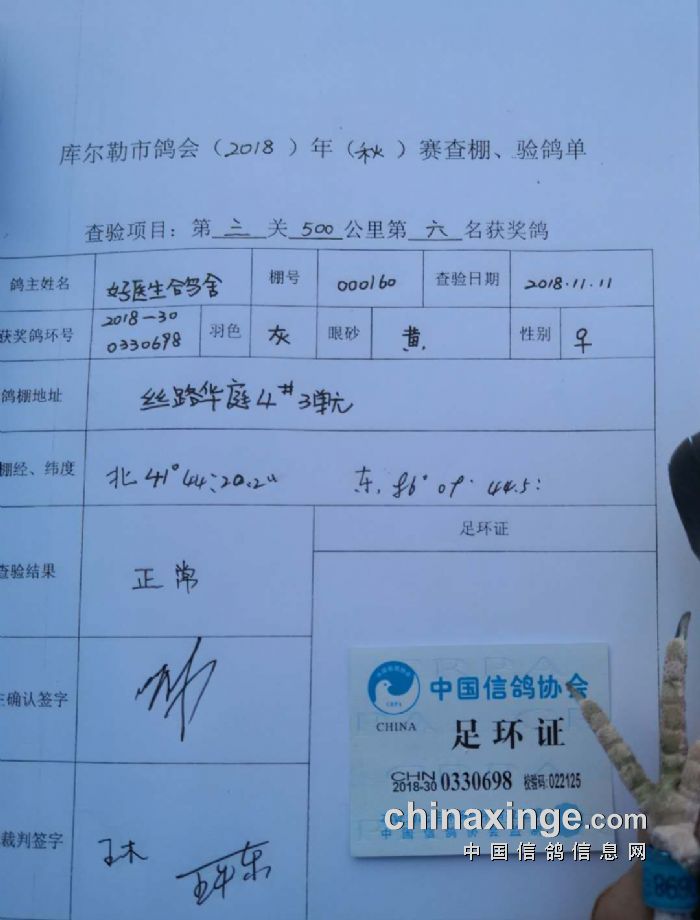 库尔勒市鸽会（2018）年（秋）赛查棚、验鸽单
查验项目：第 三 关 500 公里第 六 名获奖鸽
鸽主姓名 好医生鸽舍 棚号 000160 查验日期 2018.11.11
获奖鸽环号 2018-30 0330698 羽色 灰 眼砂 黄. 性别 ♀
鸽棚地址 丝路华庭4#3单元
棚经、纬度 北41°44:20.2" 东. 86°
足环证
查验结果 正常
主确认签字
裁判签字 王木
中国信鸽协会
CHINA
足环证
CHN
2018-30 0330698 校验码:022125
chinaxinge.com
中国信鸽信息网
869